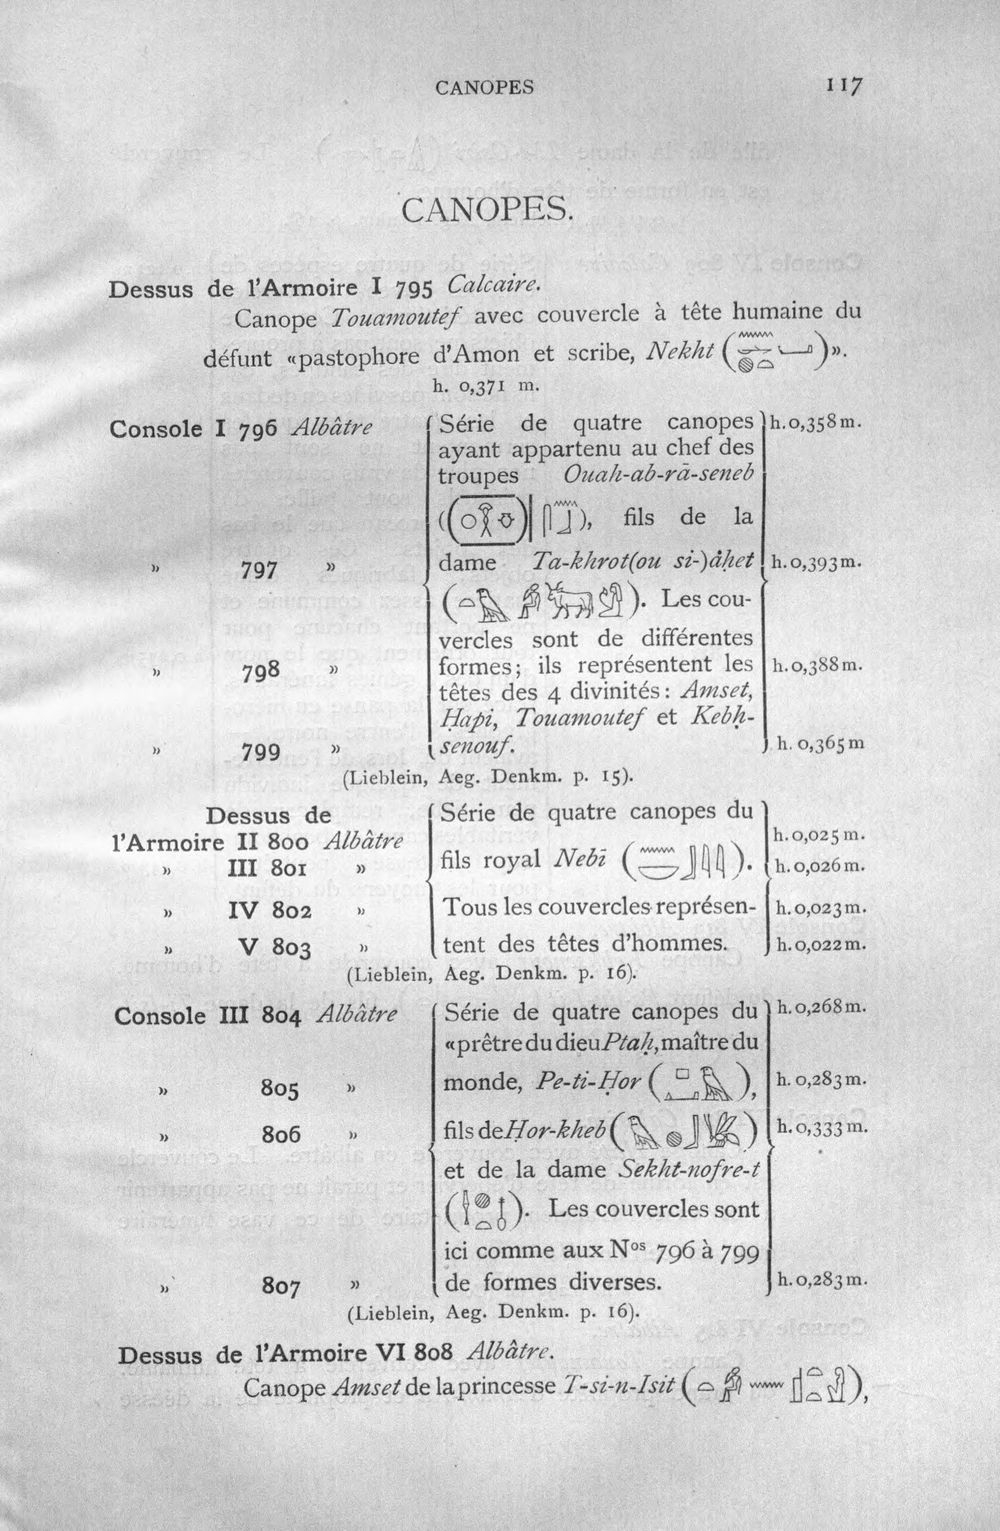 CANOPES 117
CANOPES.
Dessus de l'Armoire I 795 Calcaire.
Canope Touamoutef avec couvercle à tête humaine du
défunt «pastophore d'Amon et scribe, Nekht ( )».
h. 0,371 m.
Console I 796 Albâtre Série de quatre canopes h. 0,358 m.
ayant appartenu au chef des
troupes Ouah-ab-rā-seneb
( ), fils de la
» 797 » dame Ta-khrot(ou si-)åḥet h. 0,393 m.
( ). Les cou-
vercles sont de différentes
» 798 » formes; ils représentent les h. 0,388 m.
têtes des 4 divinités: Amset,
Ḥapi, Touamoutef et Kebḥ-
» 799 » senouf. h. 0,365 m
(Lieblein, Aeg. Denkm. p. 15).
Dessus de Série de quatre canopes du
l'Armoire II 800 Albâtre h. 0,025 m.
» III 801 » fils royal Nebī ( ). h. 0,026 m.
» IV 802 » Tous les couvercles représen- h. 0,023 m.
» V 803 » tent des têtes d'hommes. h. 0,022 m.
(Lieblein, Aeg. Denkm. p. 16).
Console III 804 Albâtre Série de quatre canopes du h. 0,268 m.
«prêtre du dieu Ptaḥ, maître du
» 805 » monde, Pe-ti-Ḥor ( ), h. 0,283 m.
» 806 » fils de Ḥor-kheb ( ) h. 0,333 m.
et de la dame Sekht-nofre-t
( ). Les couvercles sont
ici comme aux Nos 796 à 799
» 807 » de formes diverses. h. 0,283 m.
(Lieblein, Aeg. Denkm. p. 16).
Dessus de l'Armoire VI 808 Albâtre.
Canope Amset de la princesse T-si-n-Isit ( ),